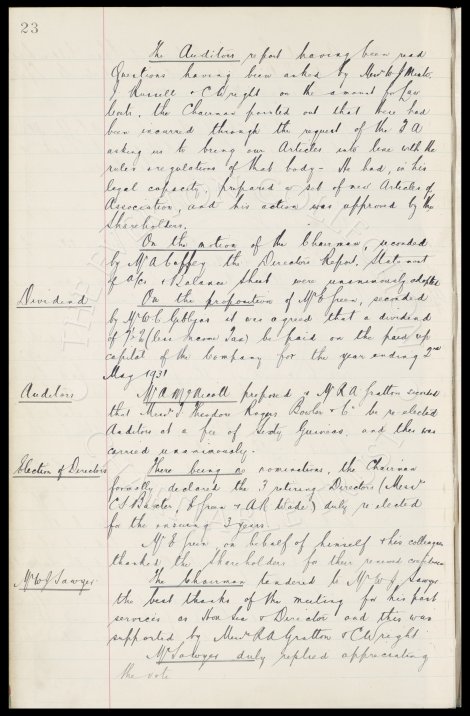 23
The Auditors report having been read
Questions having been asked by Messrs W J
J Russell & C Wright on the amount for Law
Costs, the Chairman pointed out that these had
been incurred through the request of the F A
asking us to bring our Articles into line with the
rules & regulations of that body - He had, in his
legal capacity, prepared a set of new Articles of
Association, and his action was approved by the
Shareholders.
On the motion of the Chairman, seconded
by Mr A Caffey the Directors Report, Statement
of a/cs & Balance Sheet were unanimously adopted
Dividend
On the proposition of Mr E Green, seconded
by Mr W C it was agreed that a dividend
of (less income Tax) be paid on the paid up
capital of the Company for the year ending 2nd
May 1931
Auditors
Mr A proposed & Mr R A Gratton seconded
that Messrs Theodore Rogers Bowler & Co be re-elected
Auditors at a fee of sixty Guineas, and this was
carried unanimously.
Election of Directors
There being no nominations, the Chairman
formally declared the 3 retiring Directors (Messrs
C S Baxter, E Green & A R Wade) duly re elected
for the ensuing 3 years.
Mr E Green on behalf of himself & his colleagues
thanked the Shareholders for their renewed confidence
Mr W J Sawyer
The Chairman tendered to Mr W J Sawyer
the best thanks of the meeting for his past
services as Hon Sec & Director and this was
supported by Messrs R A Gratton & C Wright
Mr Sawyer duly replied appreciating
the vote